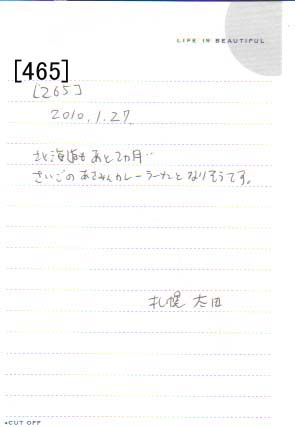 LIFE IS BEAUTIFUL
[465]
[265]
2010.1.27.
北海道もあと2カ月…
さいごのあさみんカレーラーメンとなりそうです。
札幌 太田
•CUT OFF